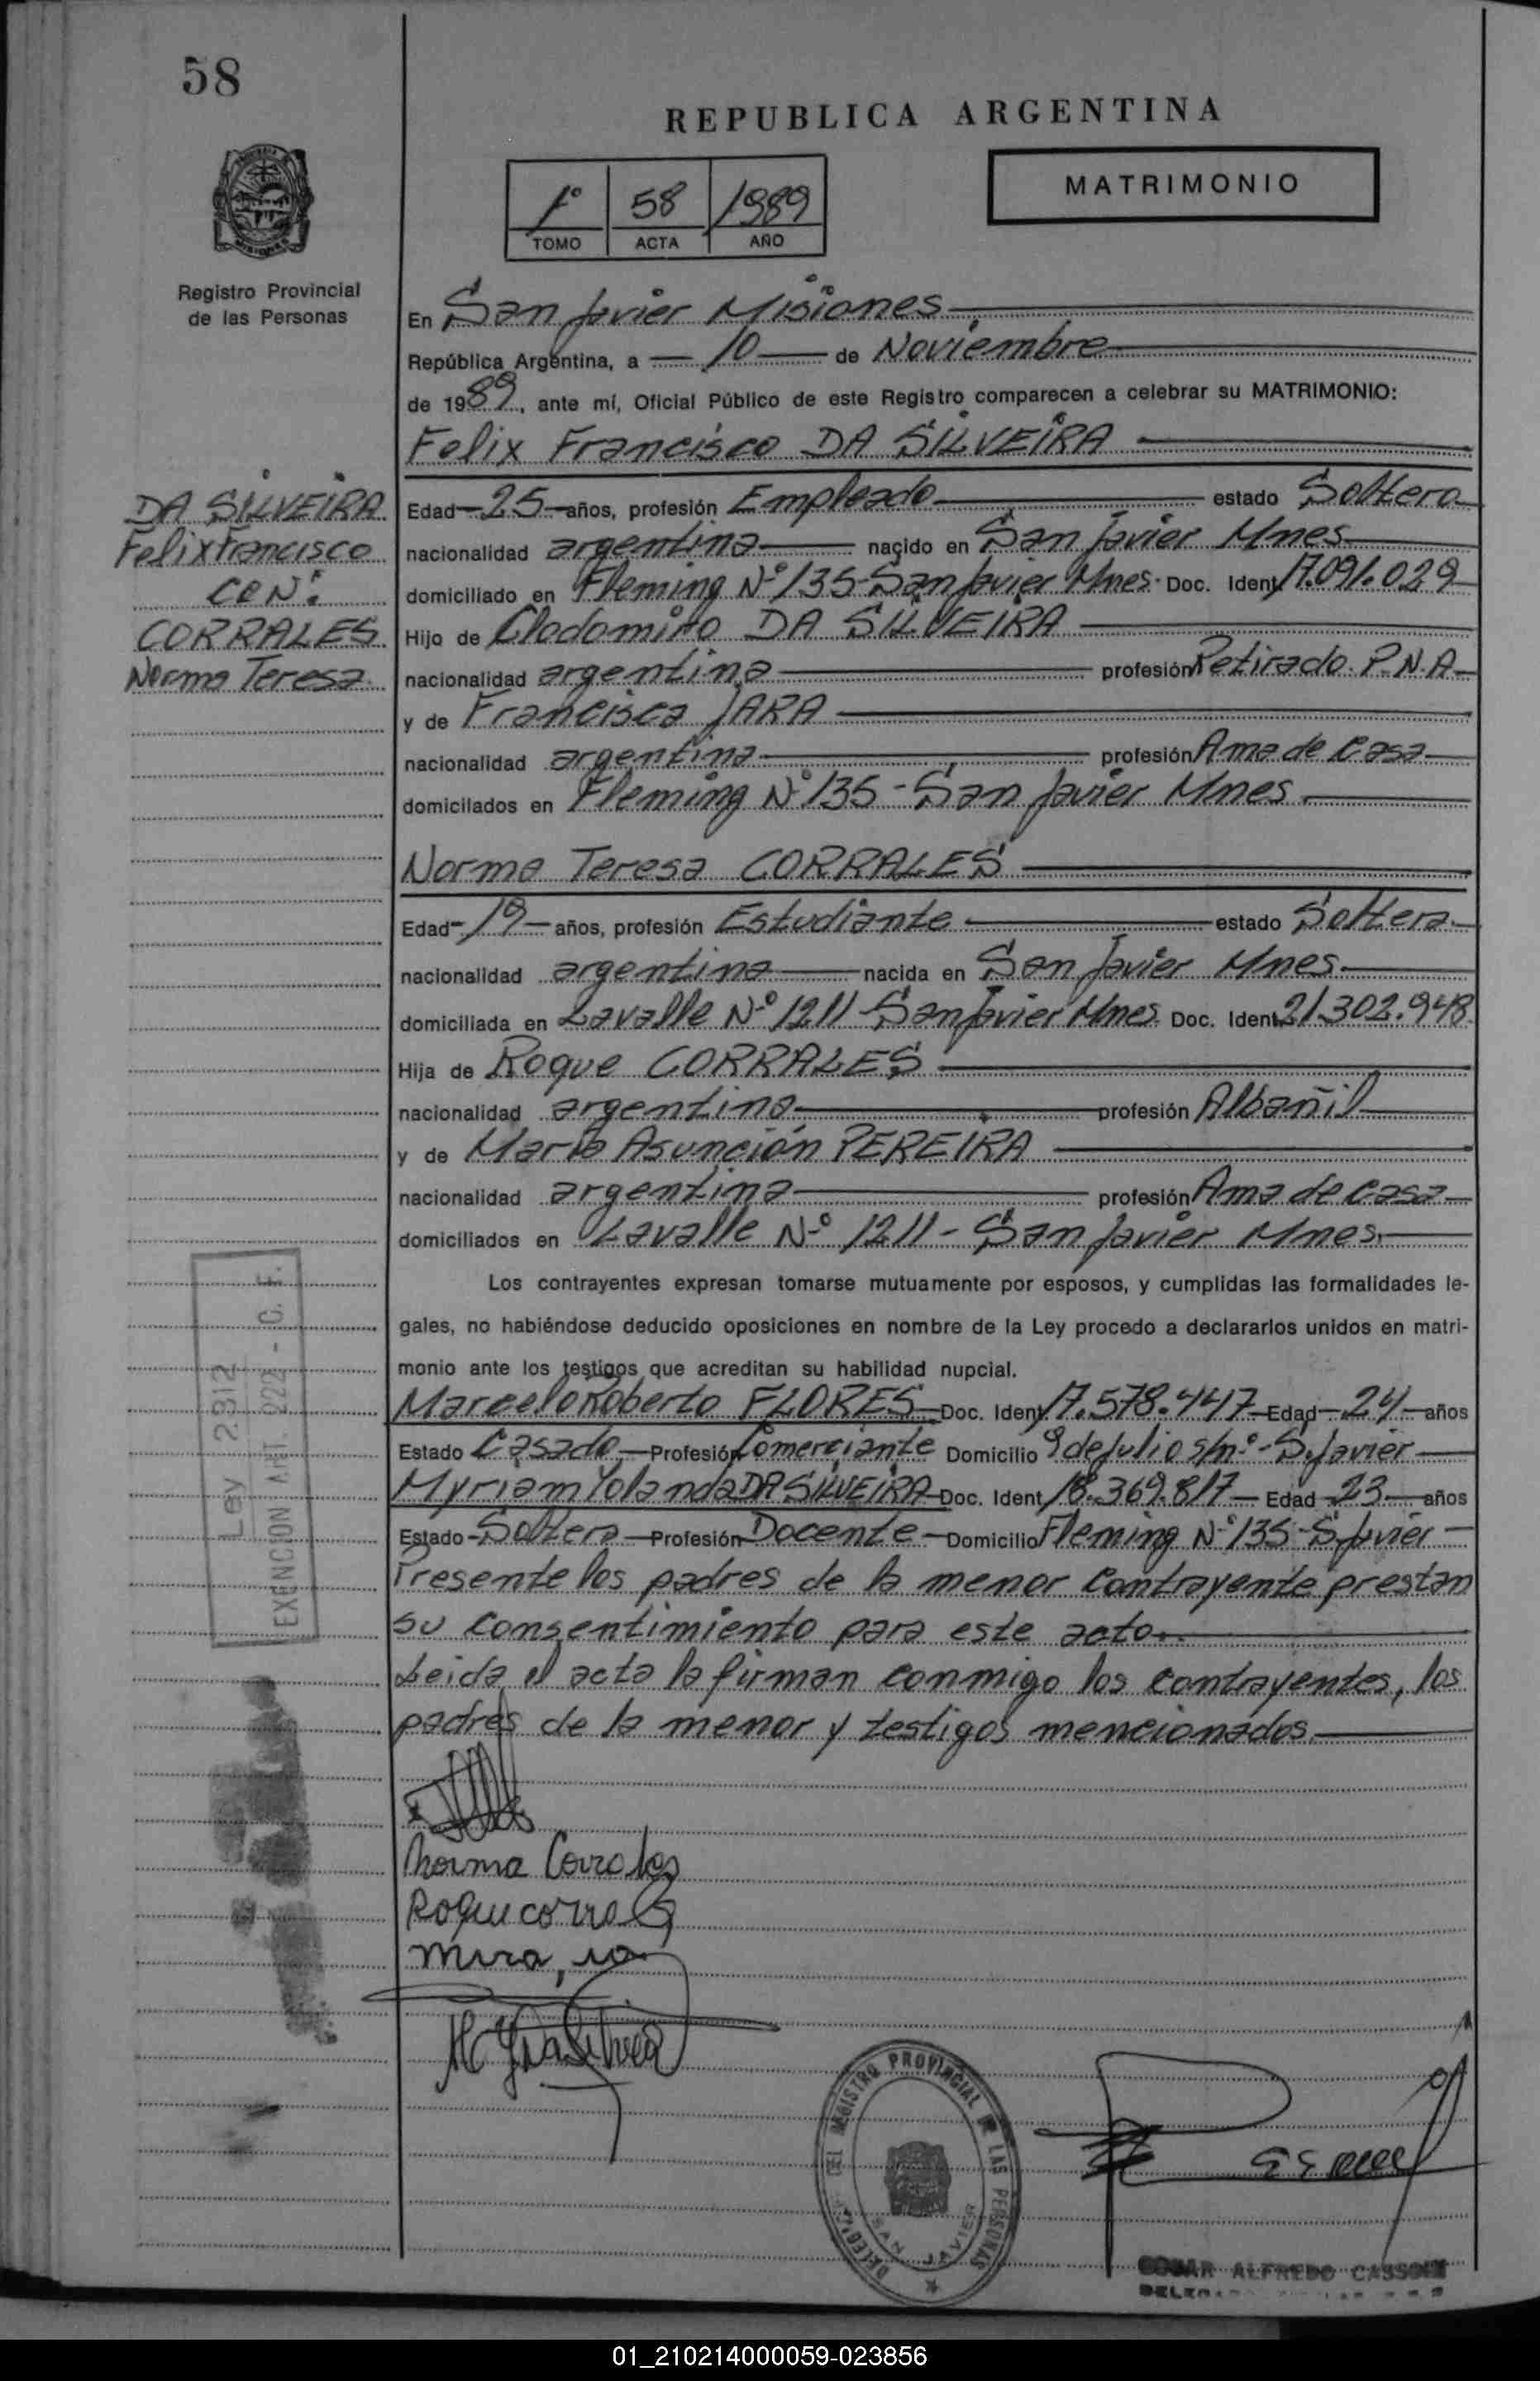 58
REPUBLICA ARGENTINA
1° 58 1989
TOMO ACTA AÑO
MATRIMONIO
Registro Provincial
de las Personas
DA SILVEIRA
Felix Francisco
CON:
CORRALES
Norma Teresa
En San Javier Misiones
República Argentina, a 10 de Noviembre
de 1989, ante mí, Oficial Público de este Registro comparecen a celebrar su MATRIMONIO:
Felix Francisco DA SILVEIRA
Edad 25 años, profesión Empleado estado Soltero
nacionalidad argentina nacido en San Javier Mnes
domiciliado en Fleming N° 135 - San Javier Mnes. Doc. Ident 17.091.029
Hijo de Clodomiro DA SILVEIRA
nacionalidad argentina profesión Retirado P.N.A
y de Francisca JARA
nacionalidad argentina profesión Ama de Casa
domicilados en Fleming N° 135 - San Javier Mnes
Norma Teresa CORRALES
Edad 19 años, profesión Estudiante estado Soltera
nacionalidad argentina nacida en San Javier Mnes
domiciliada en Lavalle N° 1211 - San Javier Mnes. Doc. Ident 21.302.948
Hija de Roque CORRALES
nacionalidad argentina profesión Albañil
y de María Asunción PEREIRA
nacionalidad argentina profesión Ama de casa
domiciliados en Lavalle N° 1211 - San Javier Mnes
Los contrayentes expresan tomarse mutuamente por esposos, y cumplidas las formalidades le-
gales, no habiéndose deducido oposiciones en nombre de la Ley procedo a declararlos unidos en matri-
monio ante los testigos que acreditan su habilidad nupcial.
Marcelo Roberto FLORES Doc. Ident 17.578.447 Edad 24 años
Estado Casado Profesión Comerciante Domicilio 9 de Julio s/n° - S. Javier
Myriam Yolanda DA SILVEIRA Doc. Ident 18.369.817 Edad 23 años
Estado Soltera Profesión Docente Domicilio Fleming N° 135 - S. Javier
Presente los padres de la menor contrayente prestan
su consentimiento para este acto.
Leida el acta la firman conmigo los contrayentes, los
padres de la menor y testigos mencionados.
Ley 2312
EXENCION ART. 222 - C. F.
Norma Corrales
Roque corrales
REGISTRO PROVINCIAL DE LAS PERSONAS
SAN JAVIER
ALFREDO
01_210214000059-023856